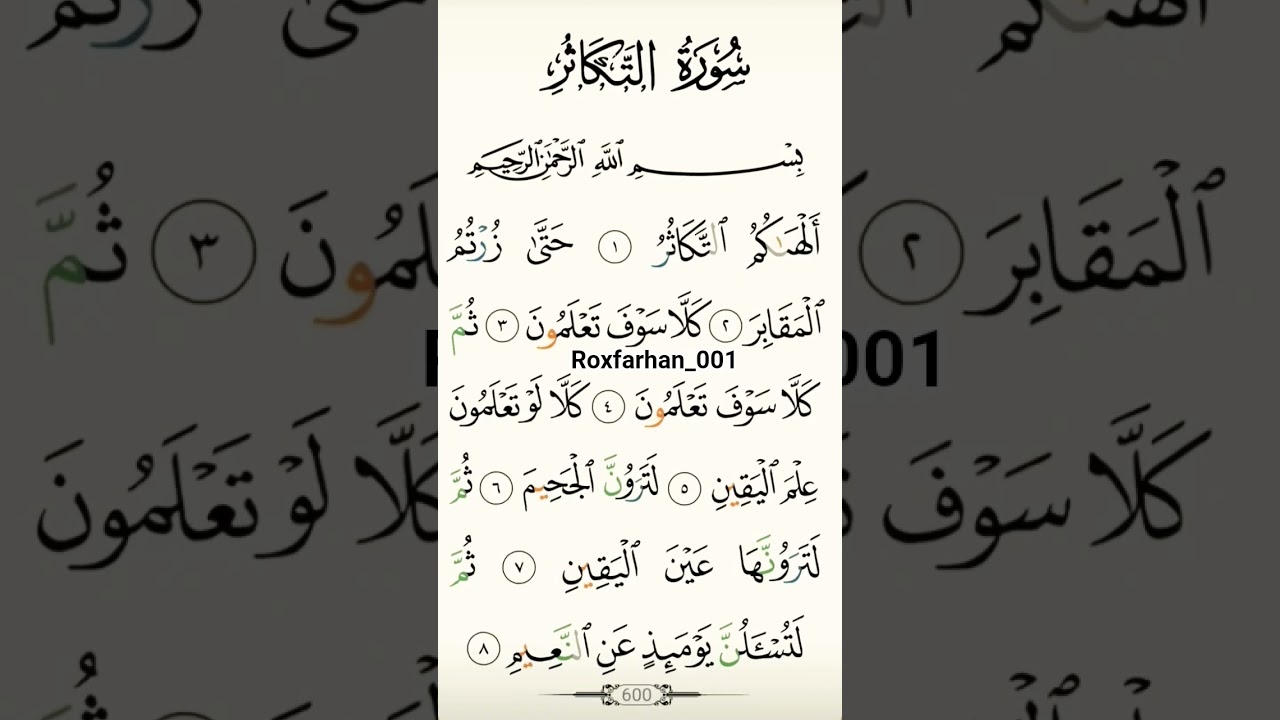 سُورَةُ التَّكَاثُرِ
بِسْمِ ٱللَّهِ ٱلرَّحْمَٰنِ ٱلرَّحِيمِ
أَلْهَىٰكُمُ ٱلتَّكَاثُرُ ١ حَتَّىٰ زُرْتُمُ
ٱلْمَقَابِرَ ٢ كَلَّا سَوْفَ تَعْلَمُونَ ٣ ثُمَّ
Roxfarhan_001
كَلَّا سَوْفَ تَعْلَمُونَ ٤ كَلَّا لَوْ تَعْلَمُونَ
عِلْمَ ٱلْيَقِينِ ٥ لَتَرَوُنَّ ٱلْجَحِيمَ ٦ ثُمَّ
لَتَرَوُنَّهَا عَيْنَ ٱلْيَقِينِ ٧ ثُمَّ
لَتُسْـَٔلُنَّ يَوْمَئِذٍ عَنِ ٱلنَّعِيمِ ٨
600